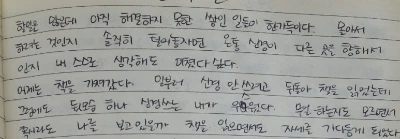 할일은 많은데 아직 해결하지 못한 쌓인 일들이 한가득이다. 몰아서
하려는 것인지 솔직히 털어놓자면 온통 신경이 다른 곳을 향해서
인지 내 스스로 생각해도 미쳤다 싶다.
어제는 책을 가져갔다. 일부러 신경 안쓰려고 뒤돌아 책을 읽었는데
그럼에도 뒷모습 하나 신경쓰는 내가 우스웠다. 무얼 하는지도 모르면서
뭐라도 나를 보고 있을까 책을 읽으면서도 자세를 가다듬게 되었다.